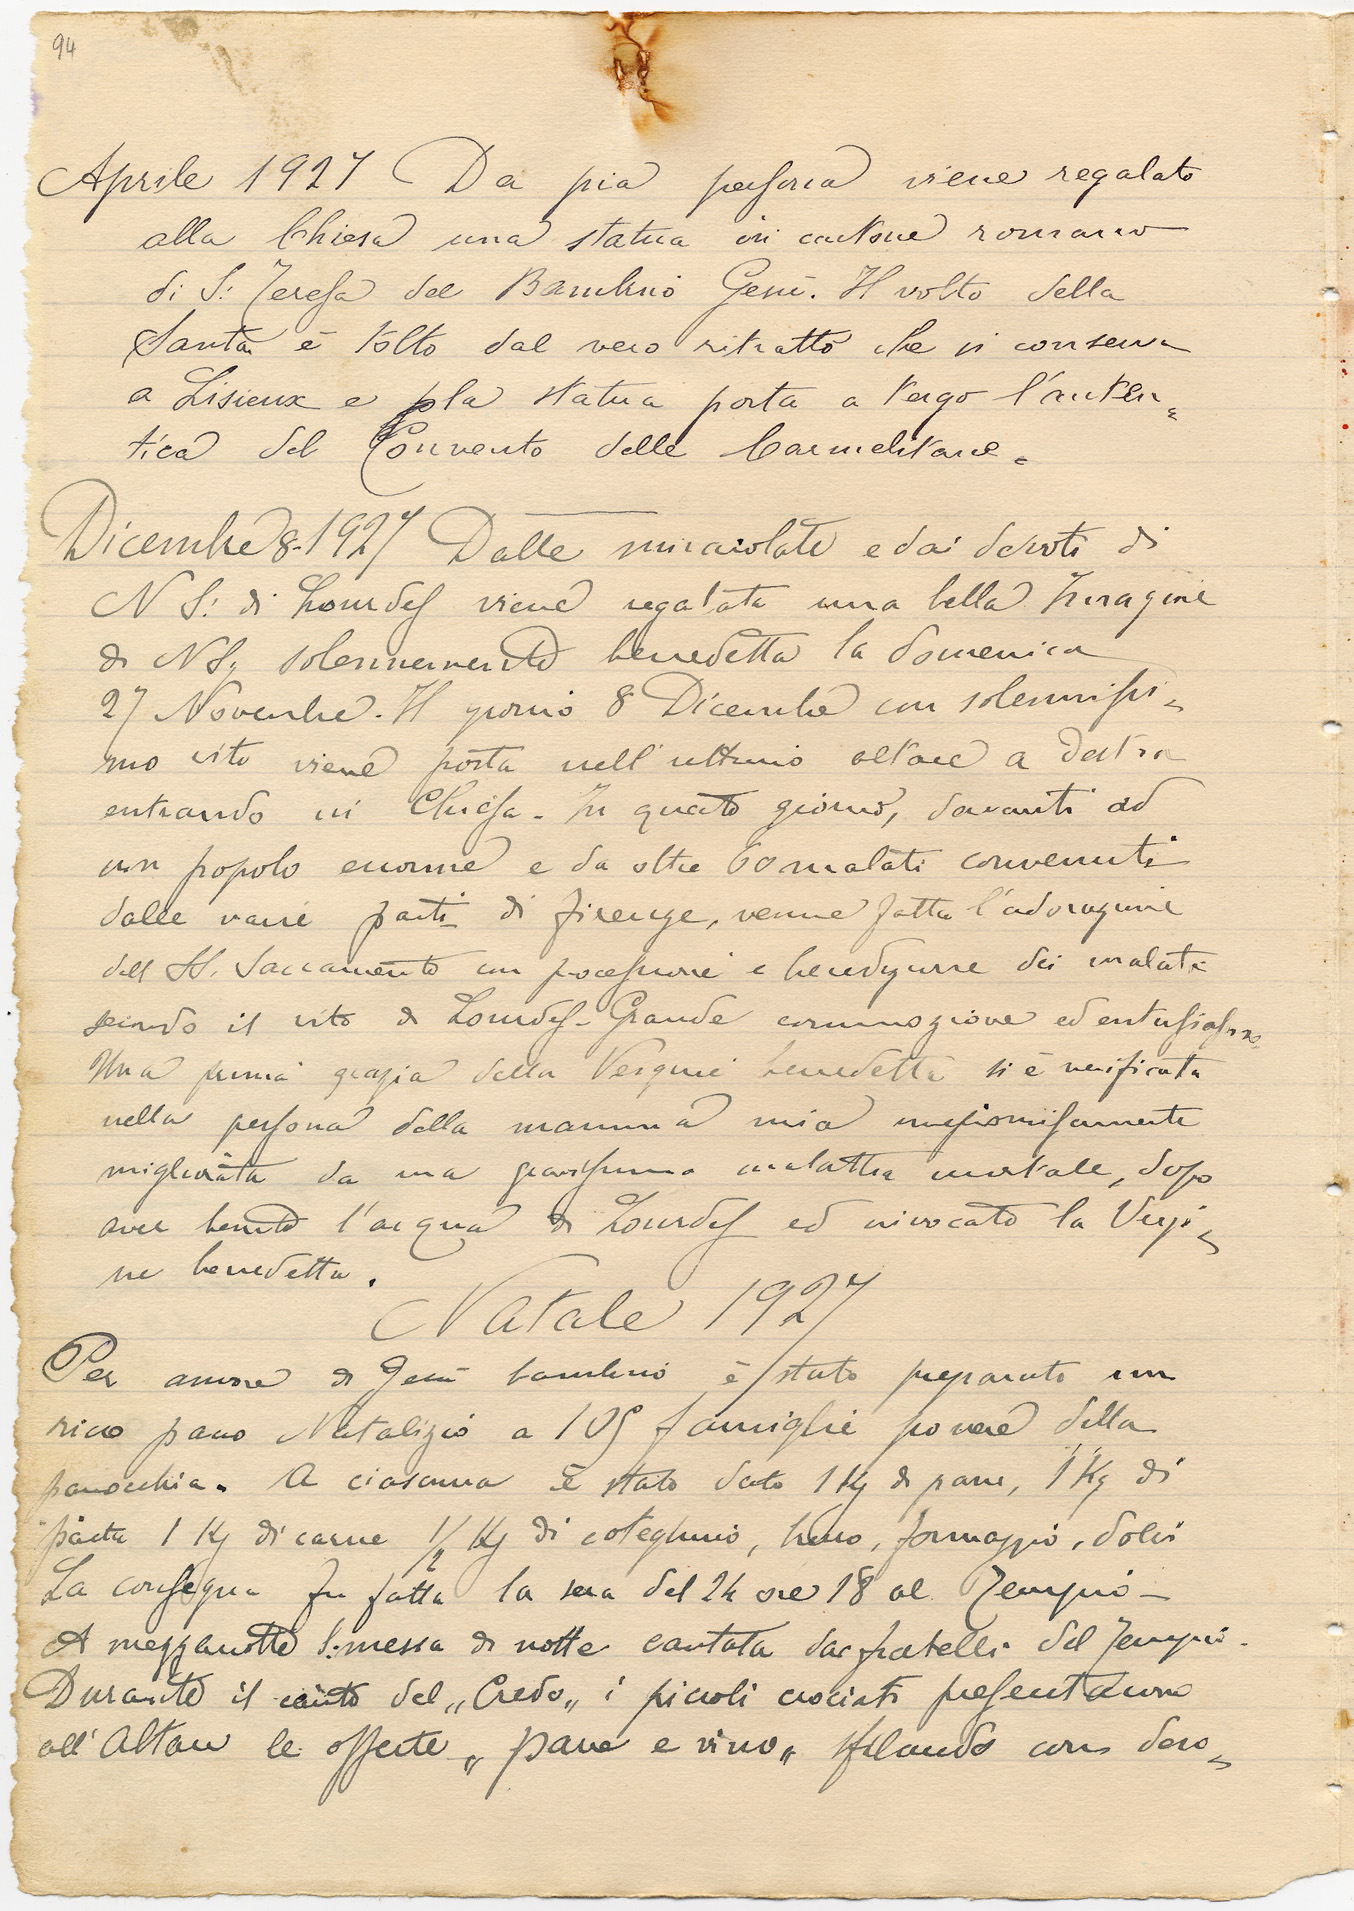 94
Aprile 1927 Da pia persona viene regalato
alla Chiesa una statua in cartone romano
di S: Teresa del Bambino Gesù. Il volto della
Santa è tolto dal vero ritratto che si conserva
a Lisieux e la statua porta a tergo l'auten-
tica del Convento delle Carmelitane.
Dicembre 8-1927 Dalle miracolate e dai devoti di
N S: di Lourdes viene regalata una bella Imagine
di NS, solennemente benedetta la domenica
27 Novembre. Il giorno 8 Dicembre con solennissi-
mo rito viene posta nell'ultimo altare a destra
entrando in Chiesa. In questo giorno, davanti ad
un popolo enorme e da oltre 60 malati convenuti
dalle varie parti di Firenze, venne fatta l'adorazione
del SS. Sacramento con processione e benedizione dei malati
secondo il rito di Lourdes. Grande commozione ed entusiasmo.
Una prima grazia della Vergine benedetta si è verificata
nella persona della mamma mia
migliorata da una gravissima malattia mortale, dopo
aver bevuto l'acqua di Lourdes ed invocato la Vergi-
ne benedetta.
Natale 1927
Per amore di Gesù bambino è stato preparato un
ricco pacco Natalizio a 105 famiglie povere della
parrocchia. A ciascuna è stato dato 1 Kg di pane, 1 Kg di
pasta 1 Kg di carne 1/2 Kg di coteghino, formaggio, dolci
La consegna fu fatta la sera del 24 ore 18 al Tempio -
A mezzanotte S: messa di notte cantata dai fratelli del Tempio.
Durante il canto del „Credo„ i piccoli crociati presentarono
all'Altare le offerte „pane e vino„ sfilando con devo-